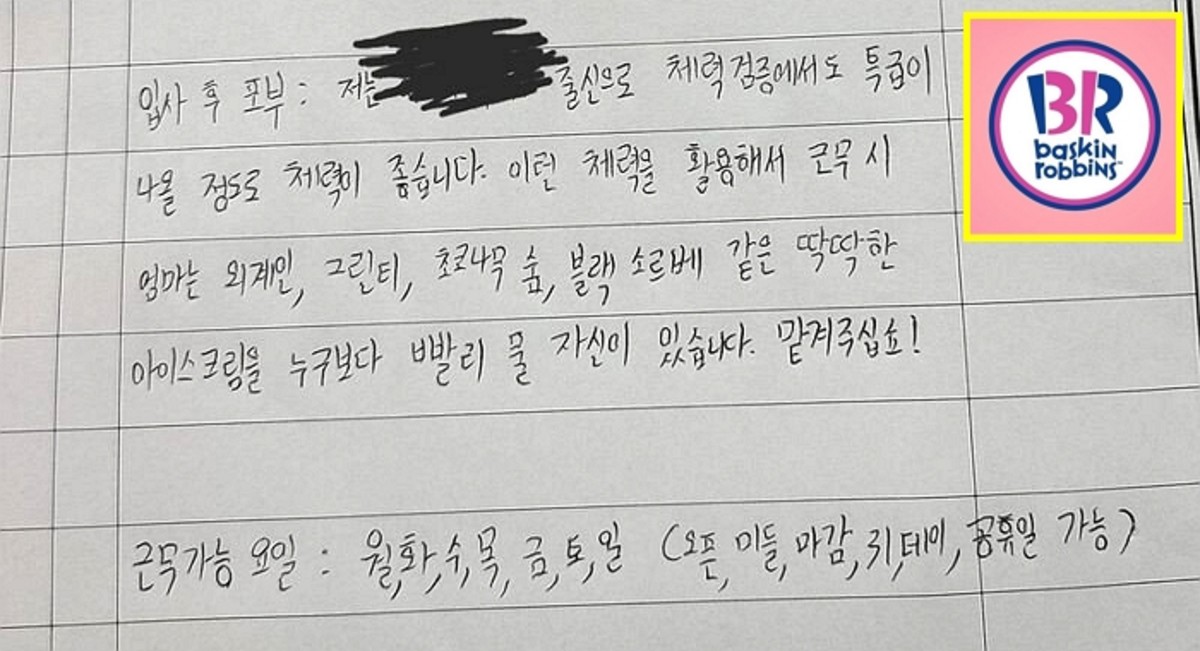 입사 후 포부 : 저는 출신으로 체력검증에서도 특급이
나올 정도로 체력이 좋습니다. 이런 체력을 활용해서 근무 시
엄마는 외계인, 그린티, 초코나무 숲, 블랙 소르베 같은 딱딱한
아이스크림을 누구보다 빨리 풀 자신이 있습니다. 맡겨주십쇼!
근무가능 요일 : 월,화,수,목,금,토,일 (오픈, 미들, 마감, 피,테이, 공휴일 가능)
BR
baskin
robbins™